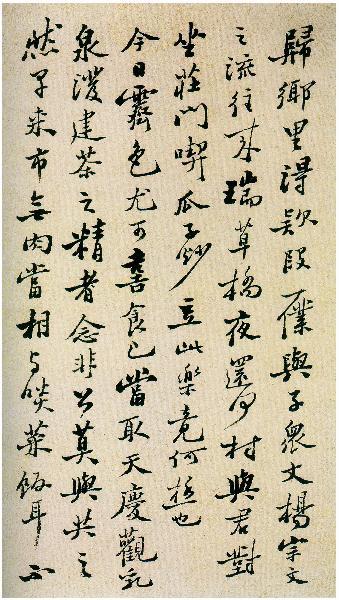 歸鄉里得欵段一僕與子衆丈楊宗文
之流往來瑞草橋夜還何村與君對
坐莊門喫瓜子炒豆此樂竟何極也
今日霽色尤可喜食已當取天慶觀乳
泉潑建茶之精者念非公莫與共之
然早來市無肉當相与啖菜飯耳不